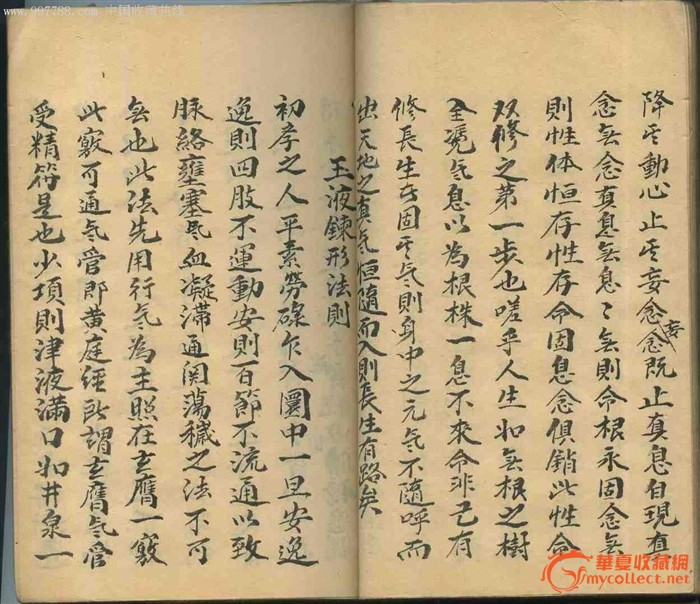 降其動心止其妄念念妄既止真息自現真
念無念真息無息〻無則命根永固念無
則性体恒存性存命固息念俱銷此性命
双修之第一步也嗟乎人生如無根之樹
全凴气息以為根株一息不來命非己有
修長生者固其气則身中之元气不隨呼而
出天地之真气恒隨而入則長生有路矣
玉液鍊形法則
初孝之人平素勞碌乍入圜中一旦安逸
逸則四肢不運動安則百節不流通以致
脉絡壅塞气血凝滞通関蕩穢之法不可
無也此法先用行气為主照在玄膺一竅
此竅可通气管即黄庭經所謂玄膺气管
受精符是也少項則津液滿口如井泉一
www.997788.com 中国收藏热线
華夏收藏網
mycollect.net